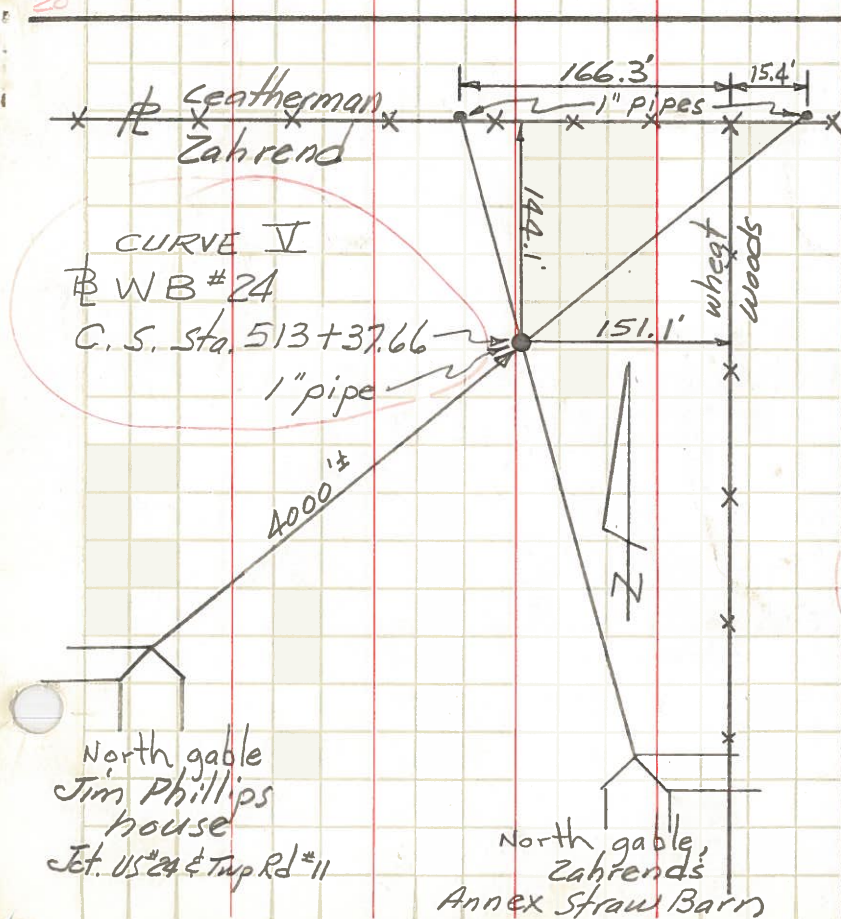 166.3'
15.4'
Leatherman
1" pipes
PL
Zahrend
144.1'
wheat
woods
CURVE V
BL WB #24
C. S. Sta. 513+37.66
151.1'
1" pipe
4000'±
N
North gable
Jim Phillips
house
Jct. US #24 & Twp Rd #11
North gable,
Zahrends
Annex Straw Barn